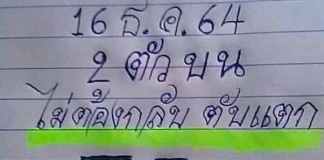 16 ธ.ค. 64
2 ตัว บน
ไม่ต้องกลับ ตับแตก